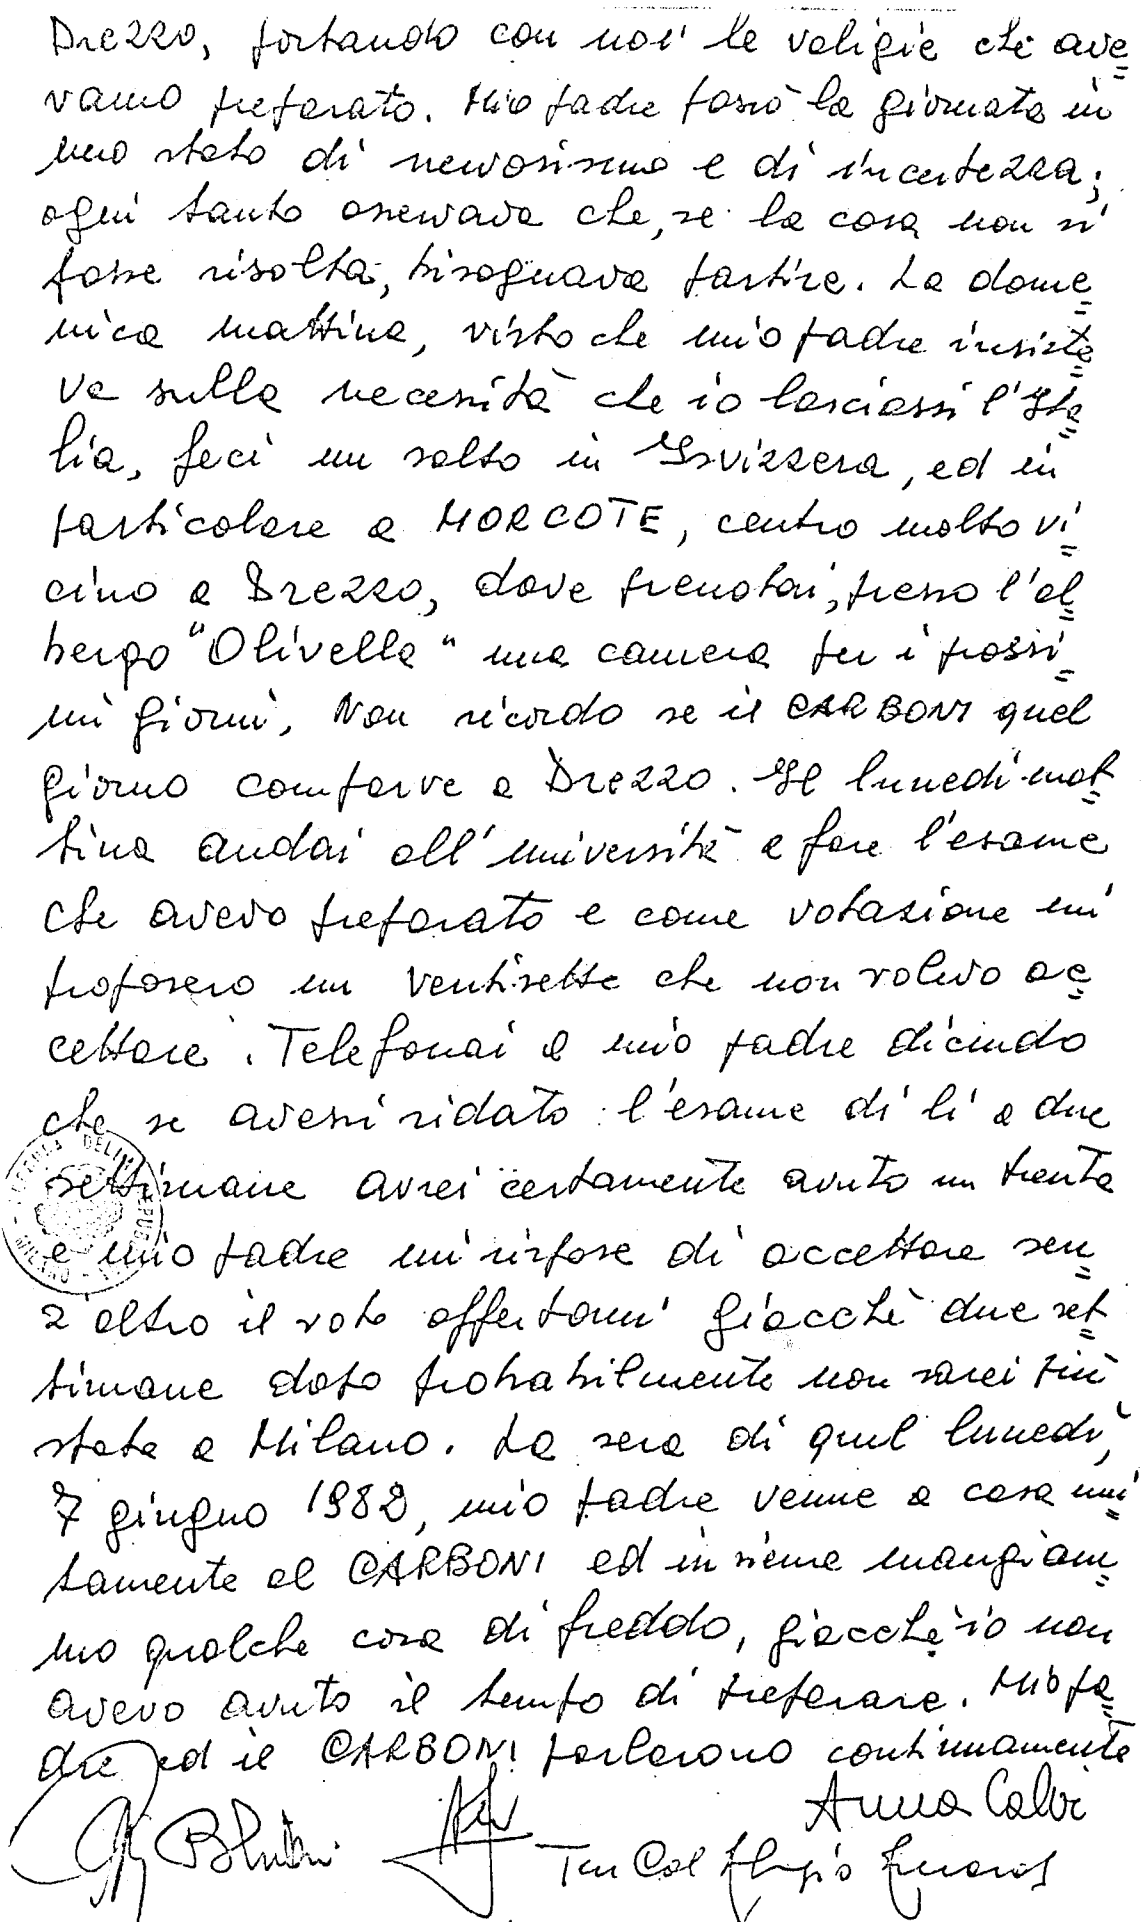 Drezzo, portando con noi le valigie che ave=
vamo preparato. Mio padre passò la giornata in
uno stato di nervosismo e di incertezza;
ogni tanto osservava che, se la cosa non si
fosse risolta, bisognava partire. La dome=
nica mattina, visto che mio padre insiste=
va sulla necessità che io lasciassi l'Ita=
lia, feci un salto in Isvizzera, ed in
particolare a MORCOTE, centro molto vi=
cino a Drezzo, dove prenotai, presso l'al=
bergo "Olivella" una camera per i prossi=
mi giorni. Non ricordo se il CARBONI quel
giorno comparve a Drezzo. Il lunedì mat=
tina andai all'università a fare l'esame
che avevo preparato e come votazione mi
proposero un ventisette che non volevo ac=
cettare. Telefonai a mio padre dicendo
che se avessi ridato l'esame di lì a due
settimane avrei certamente avuto un trenta
e mio padre mi rispose di accettare sen=
z'altro il voto offertomi giacchè due set=
timane dopo probabilmente non sarei più
stata a Milano. La sera di quel lunedì,
7 giugno 1982, mio padre venne a casa uni=
tamente al CARBONI ed insieme mangiam=
mo qualche cosa di freddo, giacchè io non
avevo avuto il tempo di preparare. Mio pa=
dre ed il CARBONI parlarono continuamente
Anna Calvi
Ten Col